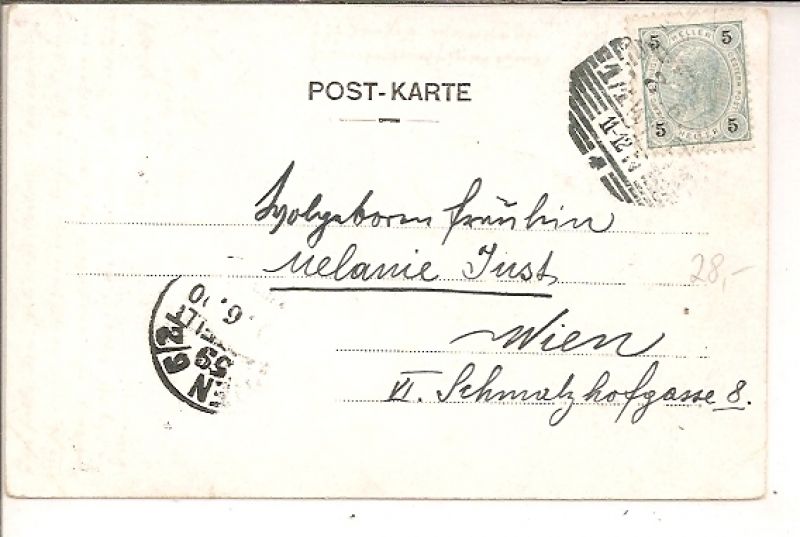 POST-KARTE
5 HELLER 5
5 HELLER 5
11-12
4
Wolgeboren Fräulein
Melanie Just
28,-
Wien
VI. Schmalzhofgasse 8.
6.
6/2
59
N